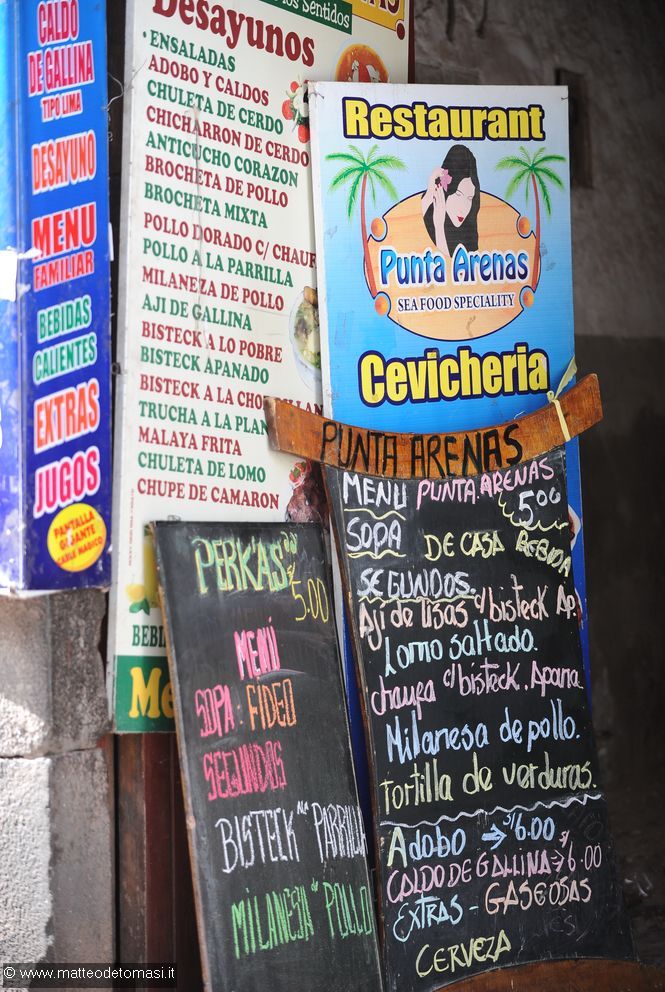 CALDO
DE GALLINA
TIPO LIMA
DESAYUNO
MENU
FAMILIAR
BEBIDAS
CALIENTES
EXTRAS
JUGOS
PANTALLA
GIGANTE
CABLE MAGICO
los Sentidos
Desayunos
• ENSALADAS
ADOBO Y CALDOS
CHULETA DE CERDO
CHICHARRON DE CERDO
ANTICUCHO CORAZON
BROCHETA DE POLLO
BROCHETA MIXTA
POLLO DORADO C/ CHAUF
POLLO A LA PARRILLA
MILANEZA DE POLLO
AJI DE GALLINA
BISTECK A LO POBRE
BISTECK APANADO
BISTECK A LA CHO
TRUCHA A LA PLAN
MALAYA FRITA
CHULETA DE LOMO
CHUPE DE CAMARON
BEBI
Me
Restaurant
Punta Arenas
SEA FOOD SPECIALITY
Cevicheria
PUNTA ARENAS
MENU PUNTA ARENAS 5.00
SOPA DE CASA BEBIDA
SEGUNDOS.
Aji de lisas c/ bisteck Ap.
Lomo saltado.
chaufa c/ bisteck. Apana
Milanesa de pollo.
Tortilla de verduras.
Adobo → S/6.00
CALDO DE GALLINA → S/6.00
EXTRAS - GASEOSAS
CERVEZA
PERK'AS
S/ 5.00
MENÚ
SOPA: FIDEO
SEGUNDOS
BISTECK A LA PARRILLA
MILANESIA DE POLLO
© www.matteodetomasi.it